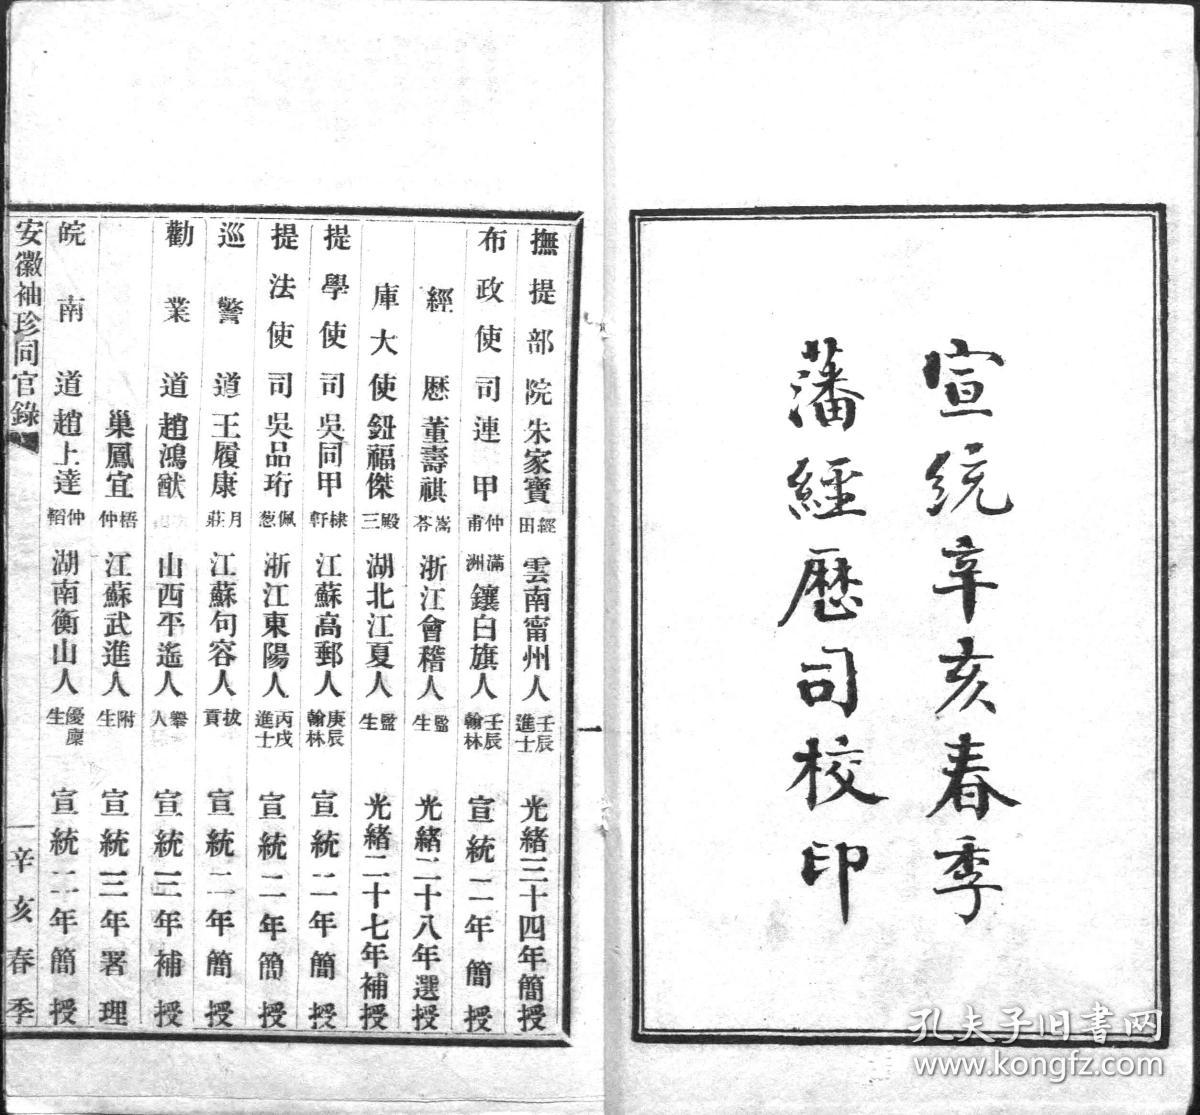 宣統辛亥春季
藩經歷司校印
撫提部院朱家寶 經田 雲南甯州人 壬辰進士 光緒三十四年簡授
布政使司連甲 仲甫 滿洲鑲白旗人 壬辰翰林 宣統二年簡授
經歷董壽祺 嵩苓 浙江會稽人 監生 光緒二十八年選授
庫大使鈕福傑 殿三 湖北江夏人 監生 光緒二十七年補授
提學使司吳同甲 棣軒 江蘇高郵人 庚辰翰林 宣統二年簡授
提法使司吳品珩 佩葱 浙江東陽人 丙戌進士 宣統二年簡授
巡警道王履康 月莊 江蘇句容人 拔貢 宣統二年簡授
勸業道趙鴻猷 山西平遙人 舉人 宣統三年補授
巢鳳宜 梧仲 江蘇武進人 附生 宣統三年署理
皖南道趙上達 仲韜 湖南衡山人 優廩生 宣統二年簡授
安徽袖珍同官錄 一 辛亥春季
孔夫子旧書网
www.kongfz.com